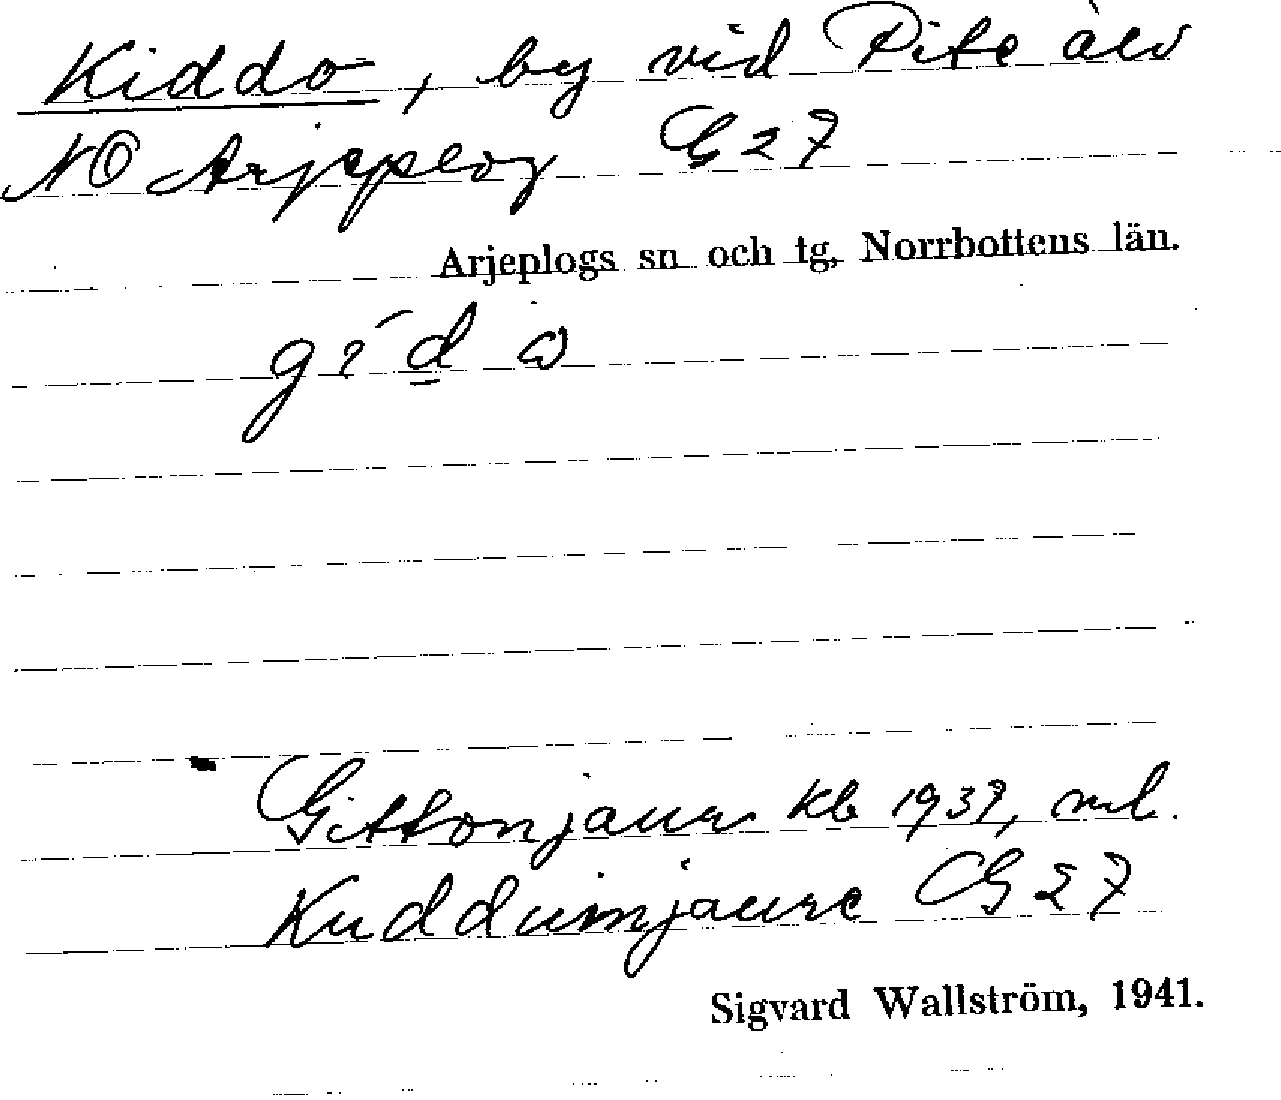 Kiddo, by vid Pite älv
NO Arjeplog G 27
Arjeplogs sn och tg, Norrbottens län.
Gittonjaur kb 1937, ml.
Kuddumjaure G 27
Sigvard Wallström, 1941.